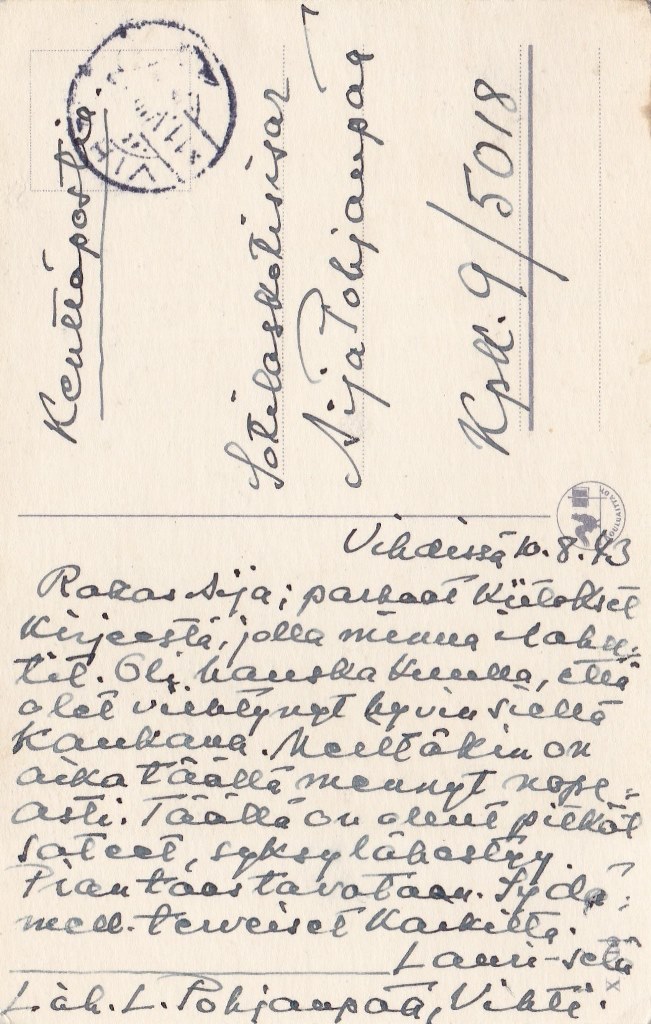 Kenttäpostia.
Sotilaskotisisar
Aija Pohjanpää
Kpk. 9/5018
Vihdissä 10.8.43
Rakas Aija; parhaat kiitokset
kirjeestä, jolla minua ilahu-
tit. Oli hauska kuulla, että
olet viihtynyt hyvin siellä
kaukana. Meilläkin on
aika täällä mennyt nope-
asti. Täällä on olleet pitkät
sateet, syksy lähestyy.
Pian taas tavataan. Sydä-
mell. terveiset kaikilta.
Lauri-setä
Läh. L. Pohjanpää, Vihti.